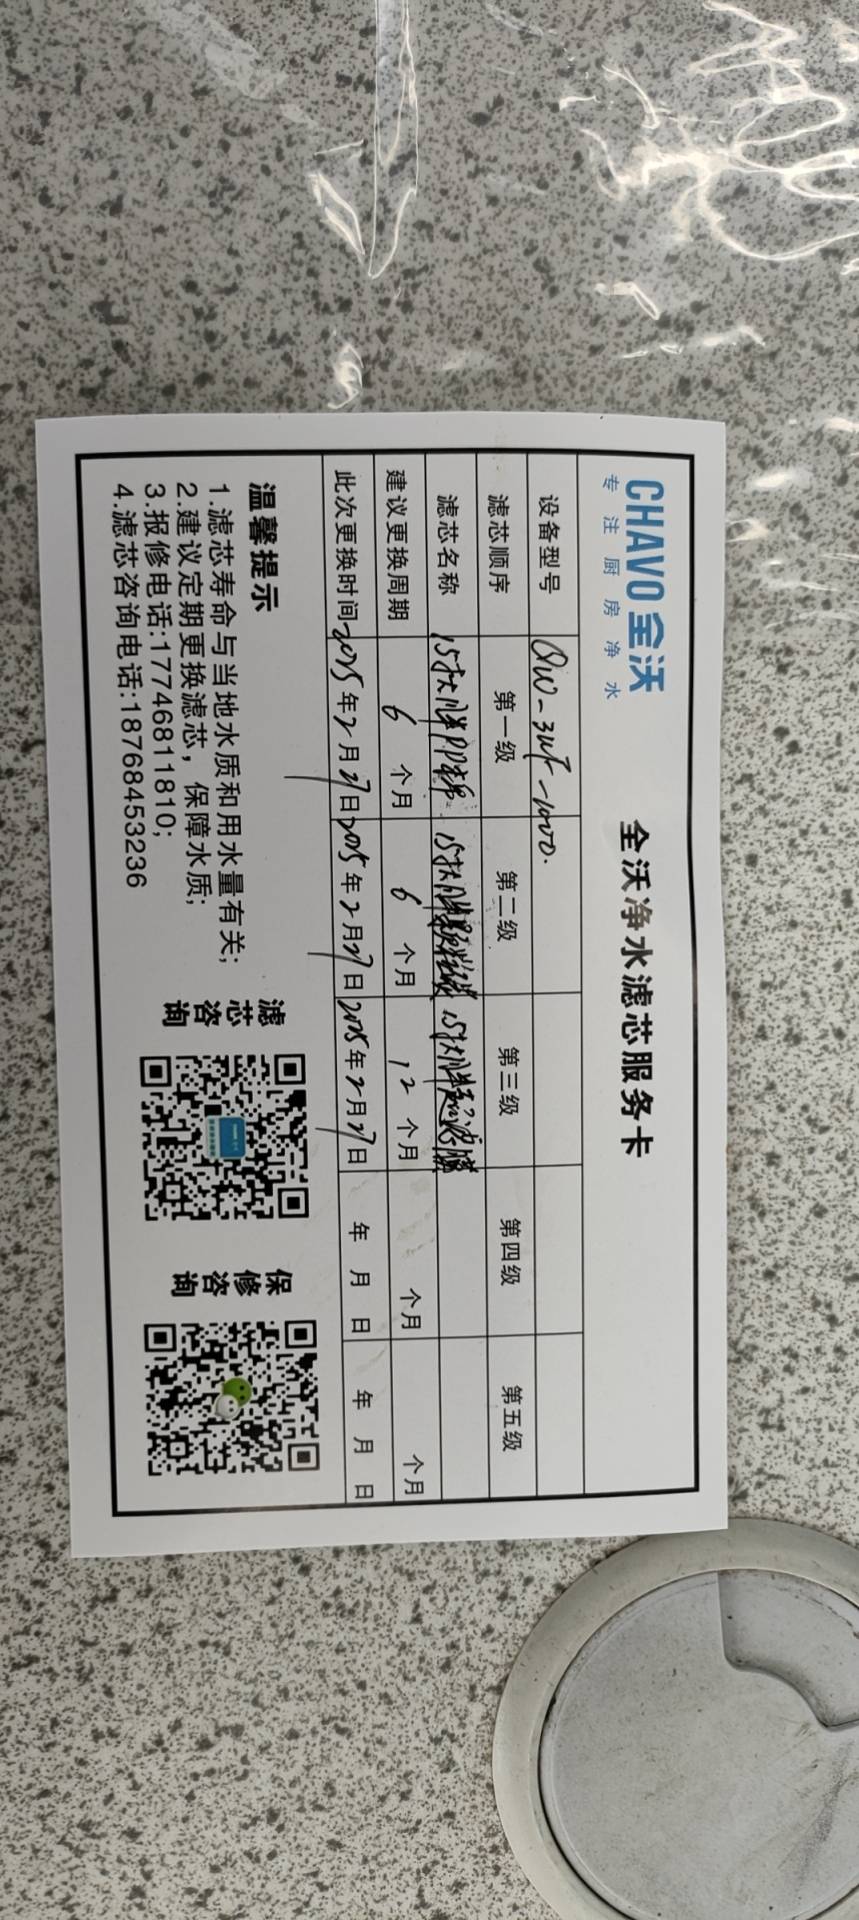 CHAVO全沃
专注厨房净水
全沃净水滤芯服务卡
设备型号 QW-3UF-1000.
滤芯顺序 第一级 第二级 第三级 第四级 第五级
滤芯名称 15寸大胖PP棉 15寸大胖颗粒炭 15寸大胖超滤膜
建议更换周期 6个月 6个月 12个月 个月 个月
此次更换时间 2025年2月27日 2025年2月27日 2025年2月27日 年 月 日 年 月 日
温馨提示
1.滤芯寿命与当地水质和用水量有关;
2.建议定期更换滤芯，保障水质;
3.报修电话:17746811810;
4.滤芯咨询电话:18768453236
滤芯咨询
保修咨询